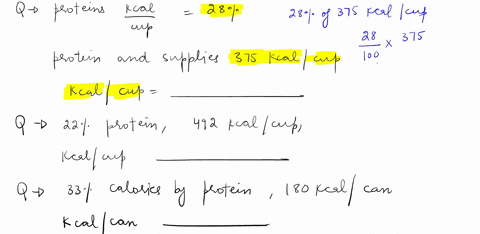 Q → proteins kcal/cup = 28% 28% of 375 kcal/cup
28/100 × 375
protein and supplies 375 kcal/cup
kcal/cup = ________
Q → 22% protein, 492 kcal/cup,
kcal/cup ________
Q → 33% calories by protein, 180 kcal/can
kcal/can ________